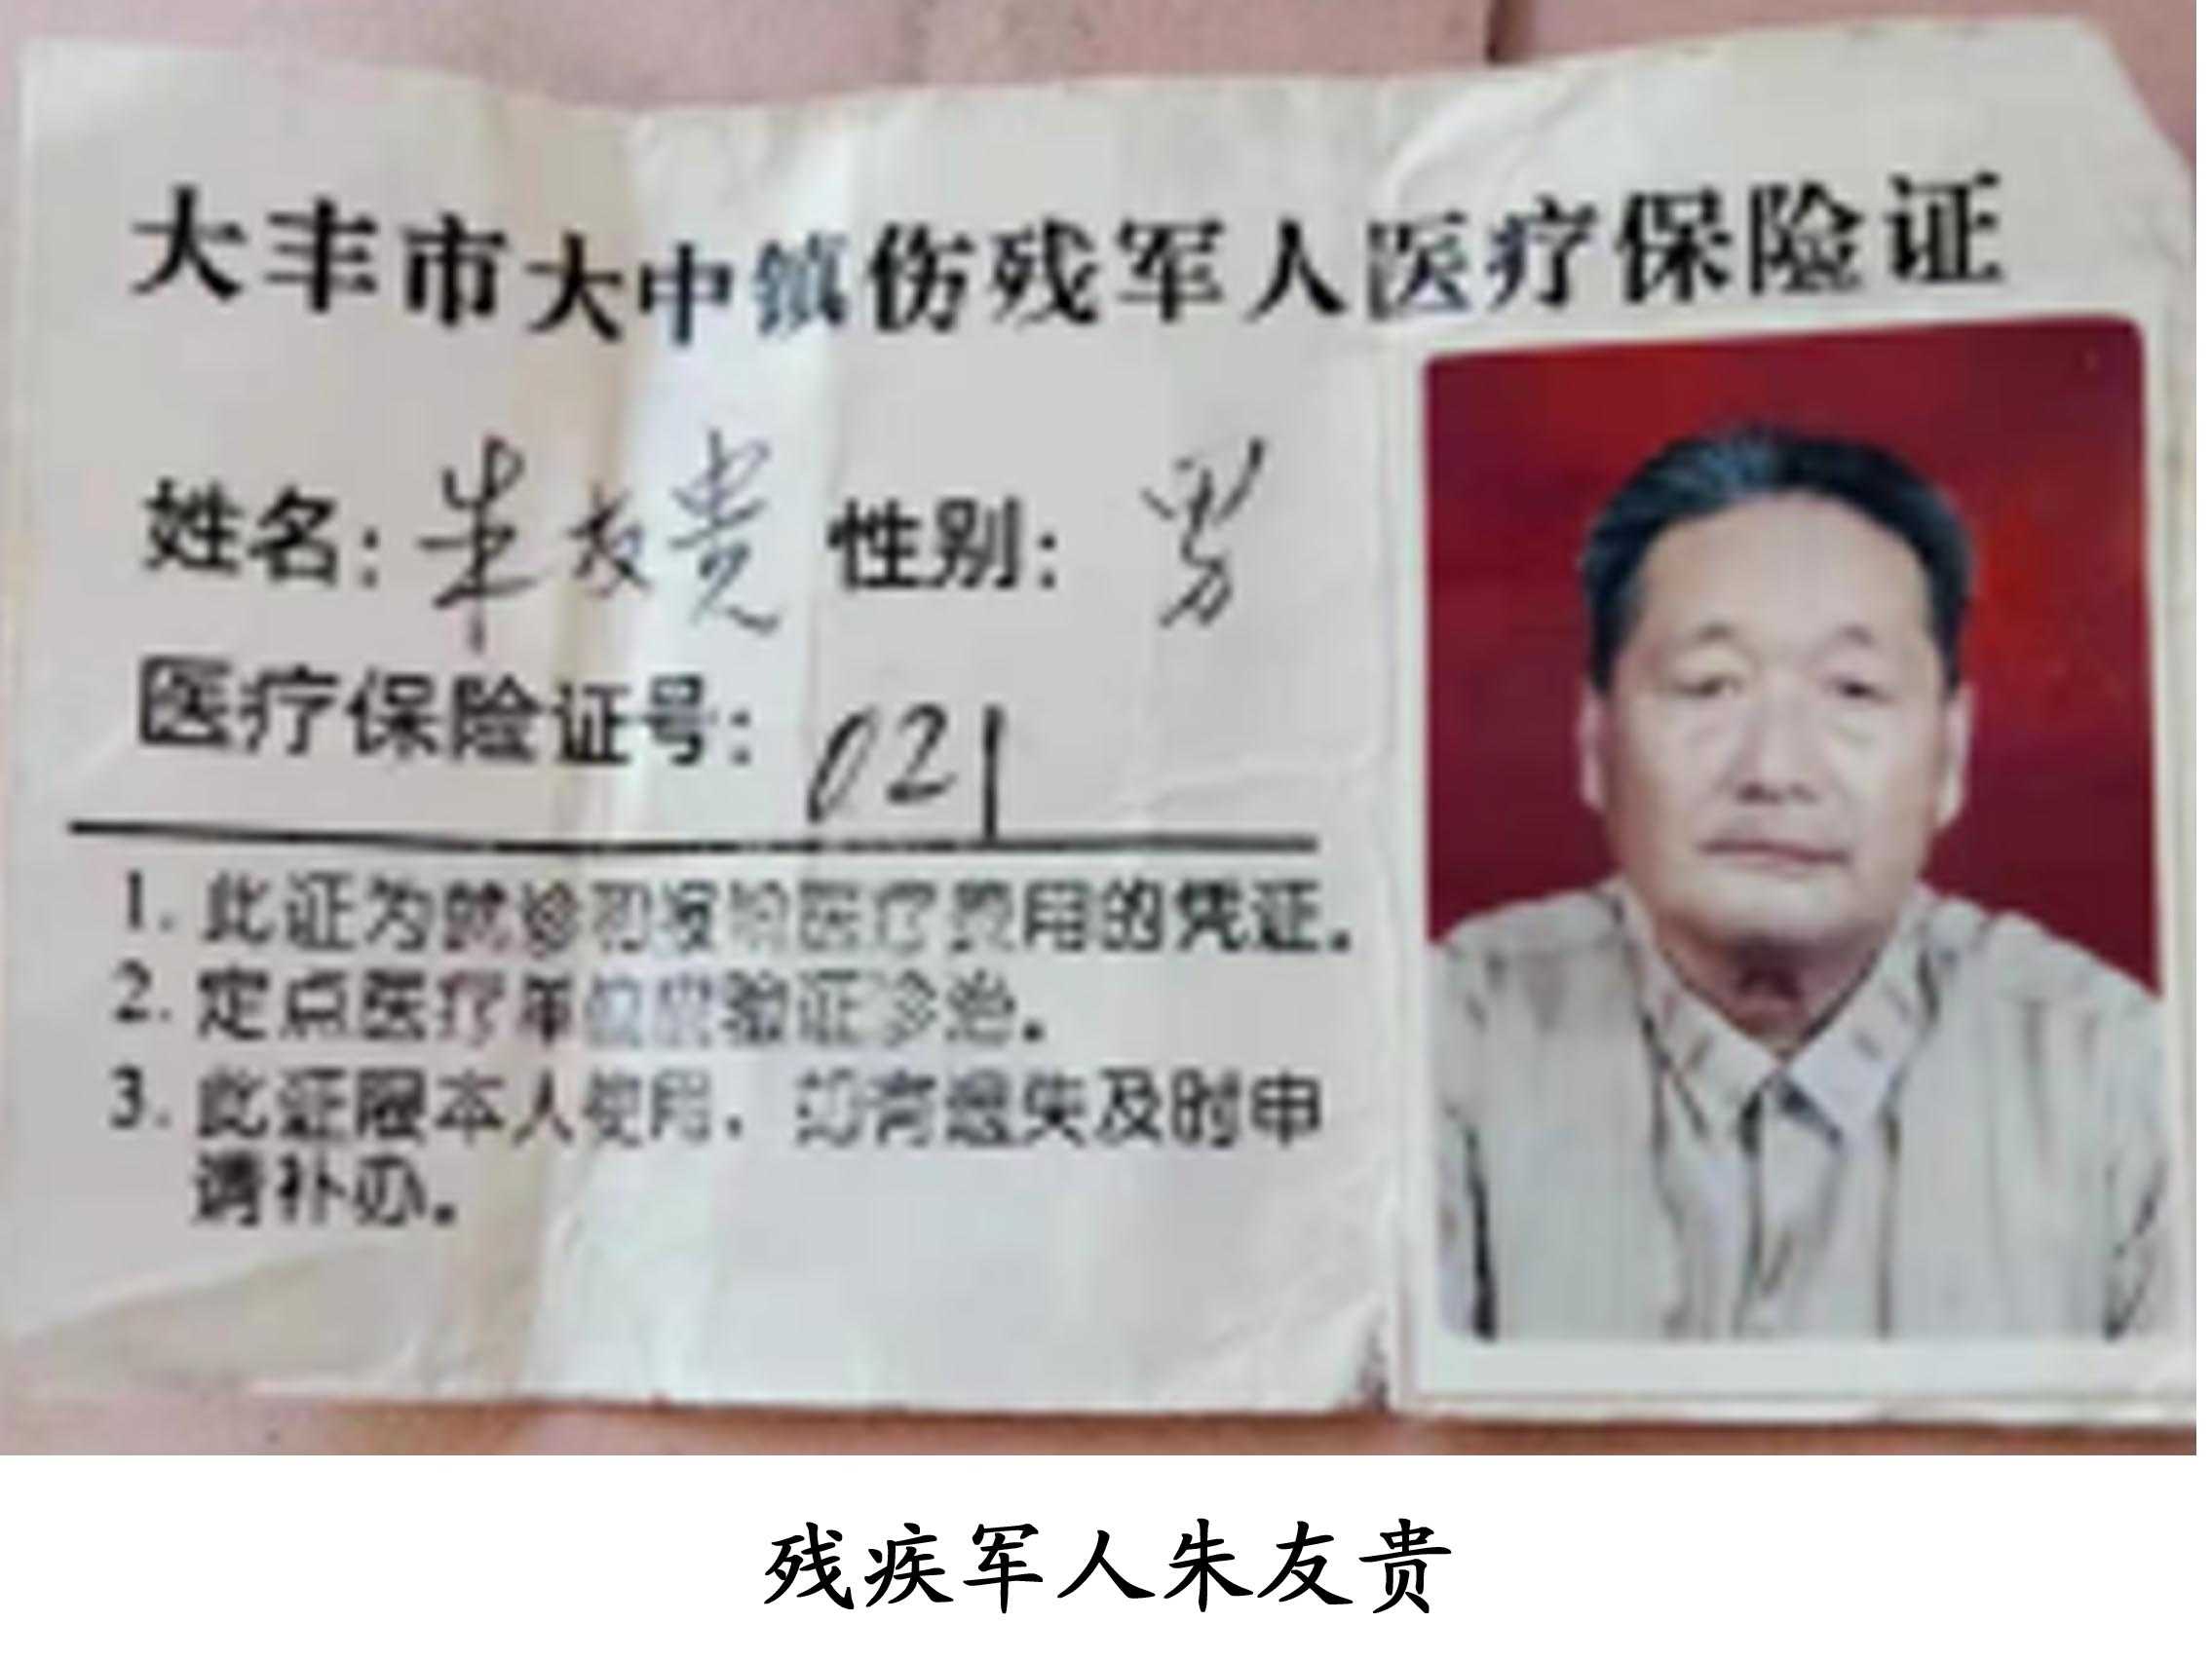 大丰市大中镇伤残军人医疗保险证
姓名：朱友贵 性别：男
医疗保险证号：021
1. 此证为就诊和报销医疗费用的凭证。
2. 定点医疗单位应验证诊治。
3. 此证限本人使用，如有遗失及时申
请补办。
残疾军人朱友贵